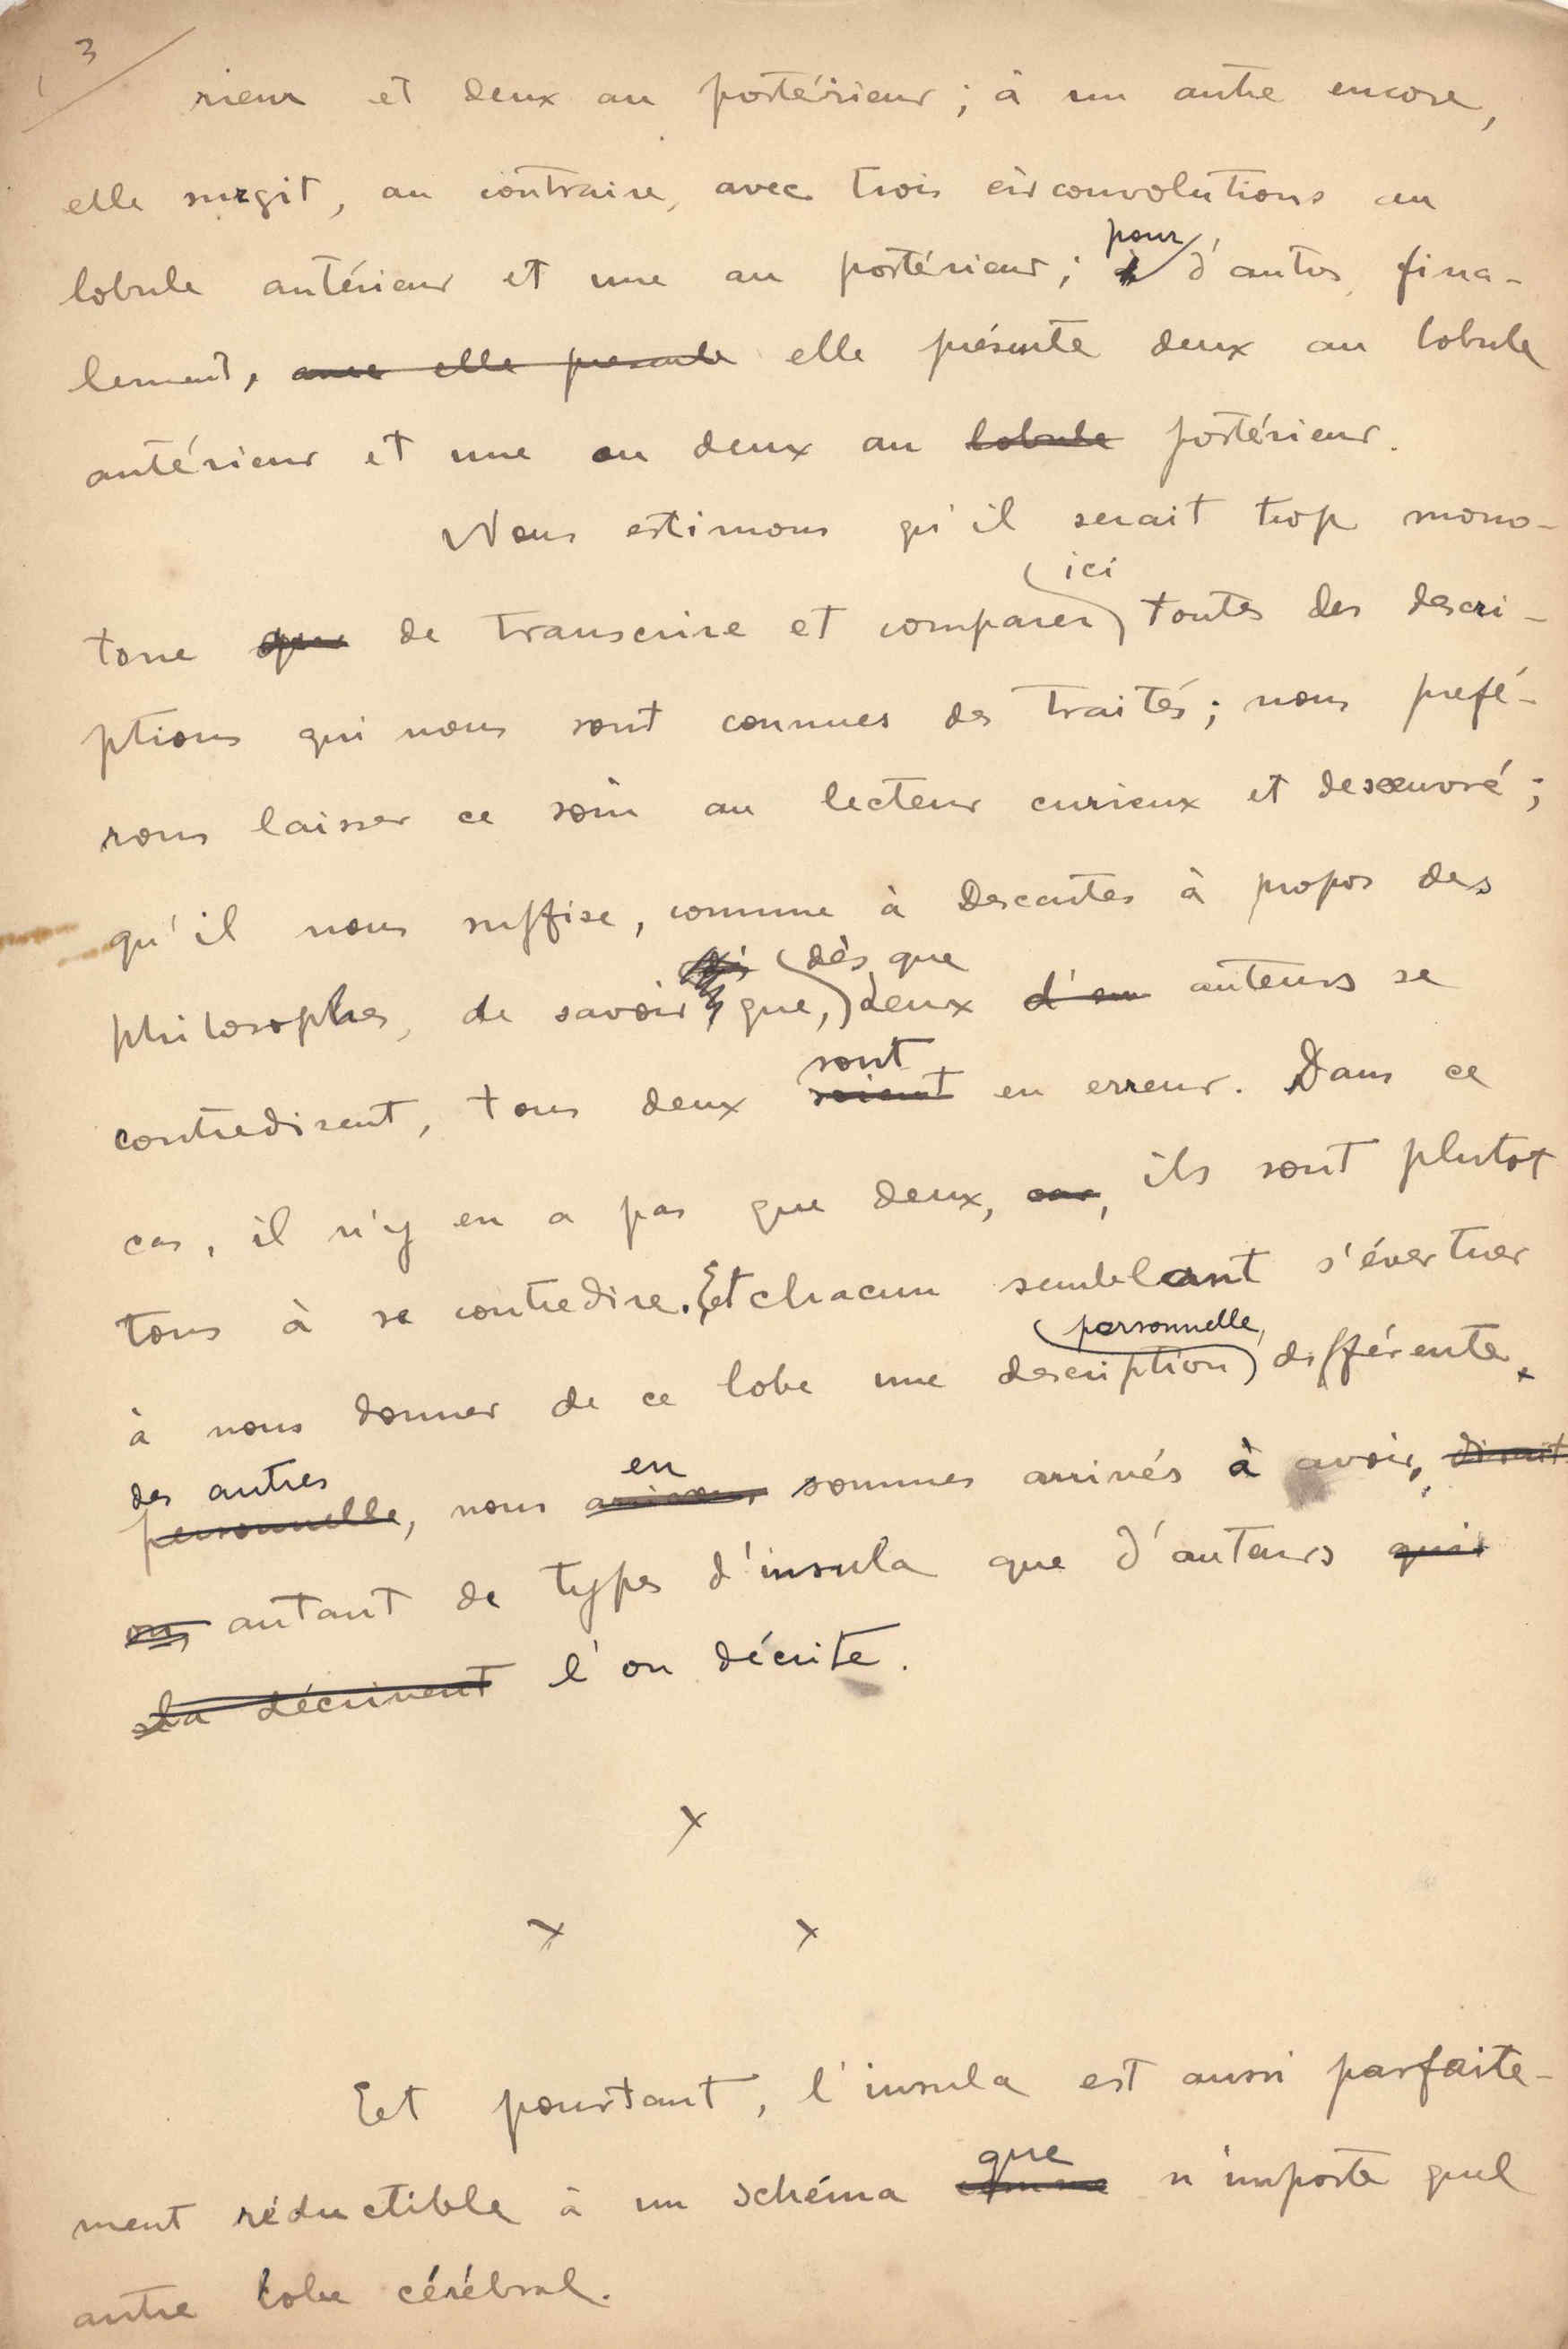 3
rieur et deux au postérieur ; à un autre encore,
elle surgit, au contraire, avec trois circonvolutions au
pour
lobule antérieur et une au postérieur ; à d'autres, fina-
lement, avec elle presente elle présente deux au lobule
antérieur et une ou deux au lobule postérieur.
Nous estimons qu'il serait trop mono-
ici
tone que de transcrire et comparer toutes des descri-
ptions qui nous sont connues des traités ; nous prefé-
rons laisser ce soin au lecteur curieux et desoeuvré ;
qu'il nous suffise, comme à Descartes à propos des
dès que
philosophes, de savoir que, deux d'eu auteurs se
sont
contredisent, tous deux soient en erreur. Dans ce
cas, il n'y en a pas que deux, car, ils sont plutot
tous à se contredire. Et chacun semblant s'évertuer
personnelle,
à nous donner de ce lobe une description différente
des autres en
personnelle, nous arrivons sommes arrivés à avoir, disait
on, autant de types d'insula que d'auteurs qui
la décrivent l'on décrite.
x
x x
Et pourtant, l'insula est aussi parfaite-
que
ment réductible à un schéma comme n'importe quel
autre lobe cérébral.